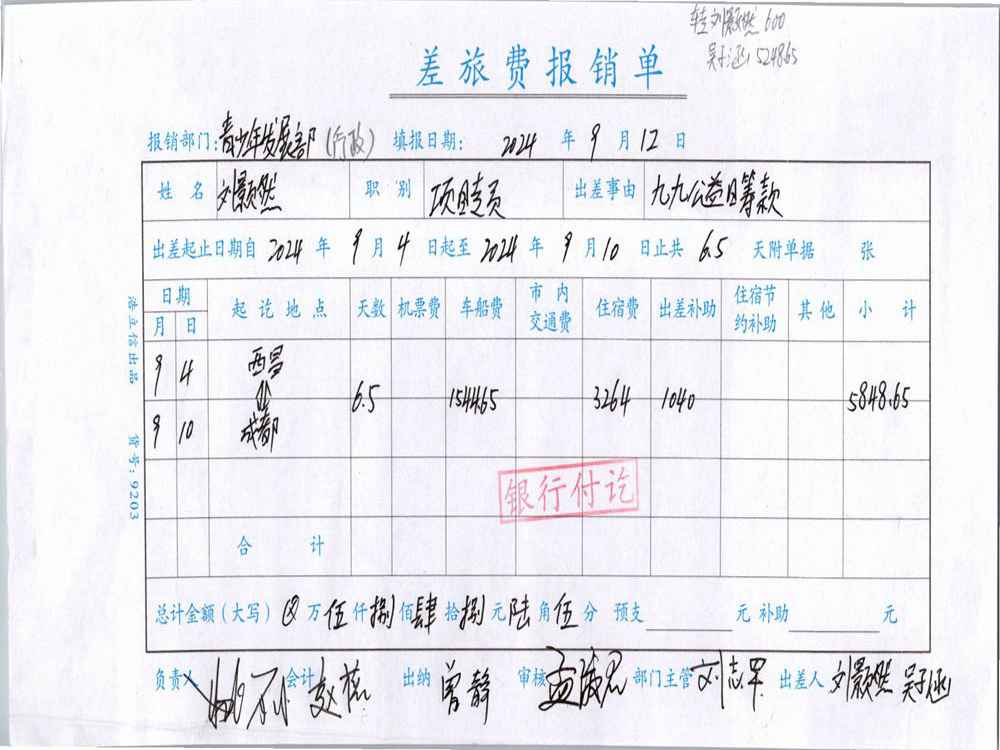 转刘颢燃 600
吴子涵 5248.65
差旅费报销单
报销部门: 青少年发展部 (行政) 填报日期: 2024 年 9 月 12 日
姓名 刘颢燃 职别 项目专员 出差事由 九九公益日筹款
出差起止日期自 2024 年 9 月 4 日起至 2024 年 9 月 10 日止共 6.5 天附单据 张
日期 起讫地点 天数 机票费 车船费 市内交通费 住宿费 出差补助 住宿节约补助 其他 小计
月 日
9 4 西昌
6.5 1544.65 3264 1040 5848.65
9 10 成都
银行付讫
合计
总计金额(大写) ⊗ 万 伍 仟 捌 佰 肆 拾 捌 元 陆 角 伍 分 预支 元 补助 元
负责人 会计 出纳 曾静 审核 部门主管 刘志军 出差人 刘颢燃 吴子涵
浩立信出品 货号: 9203